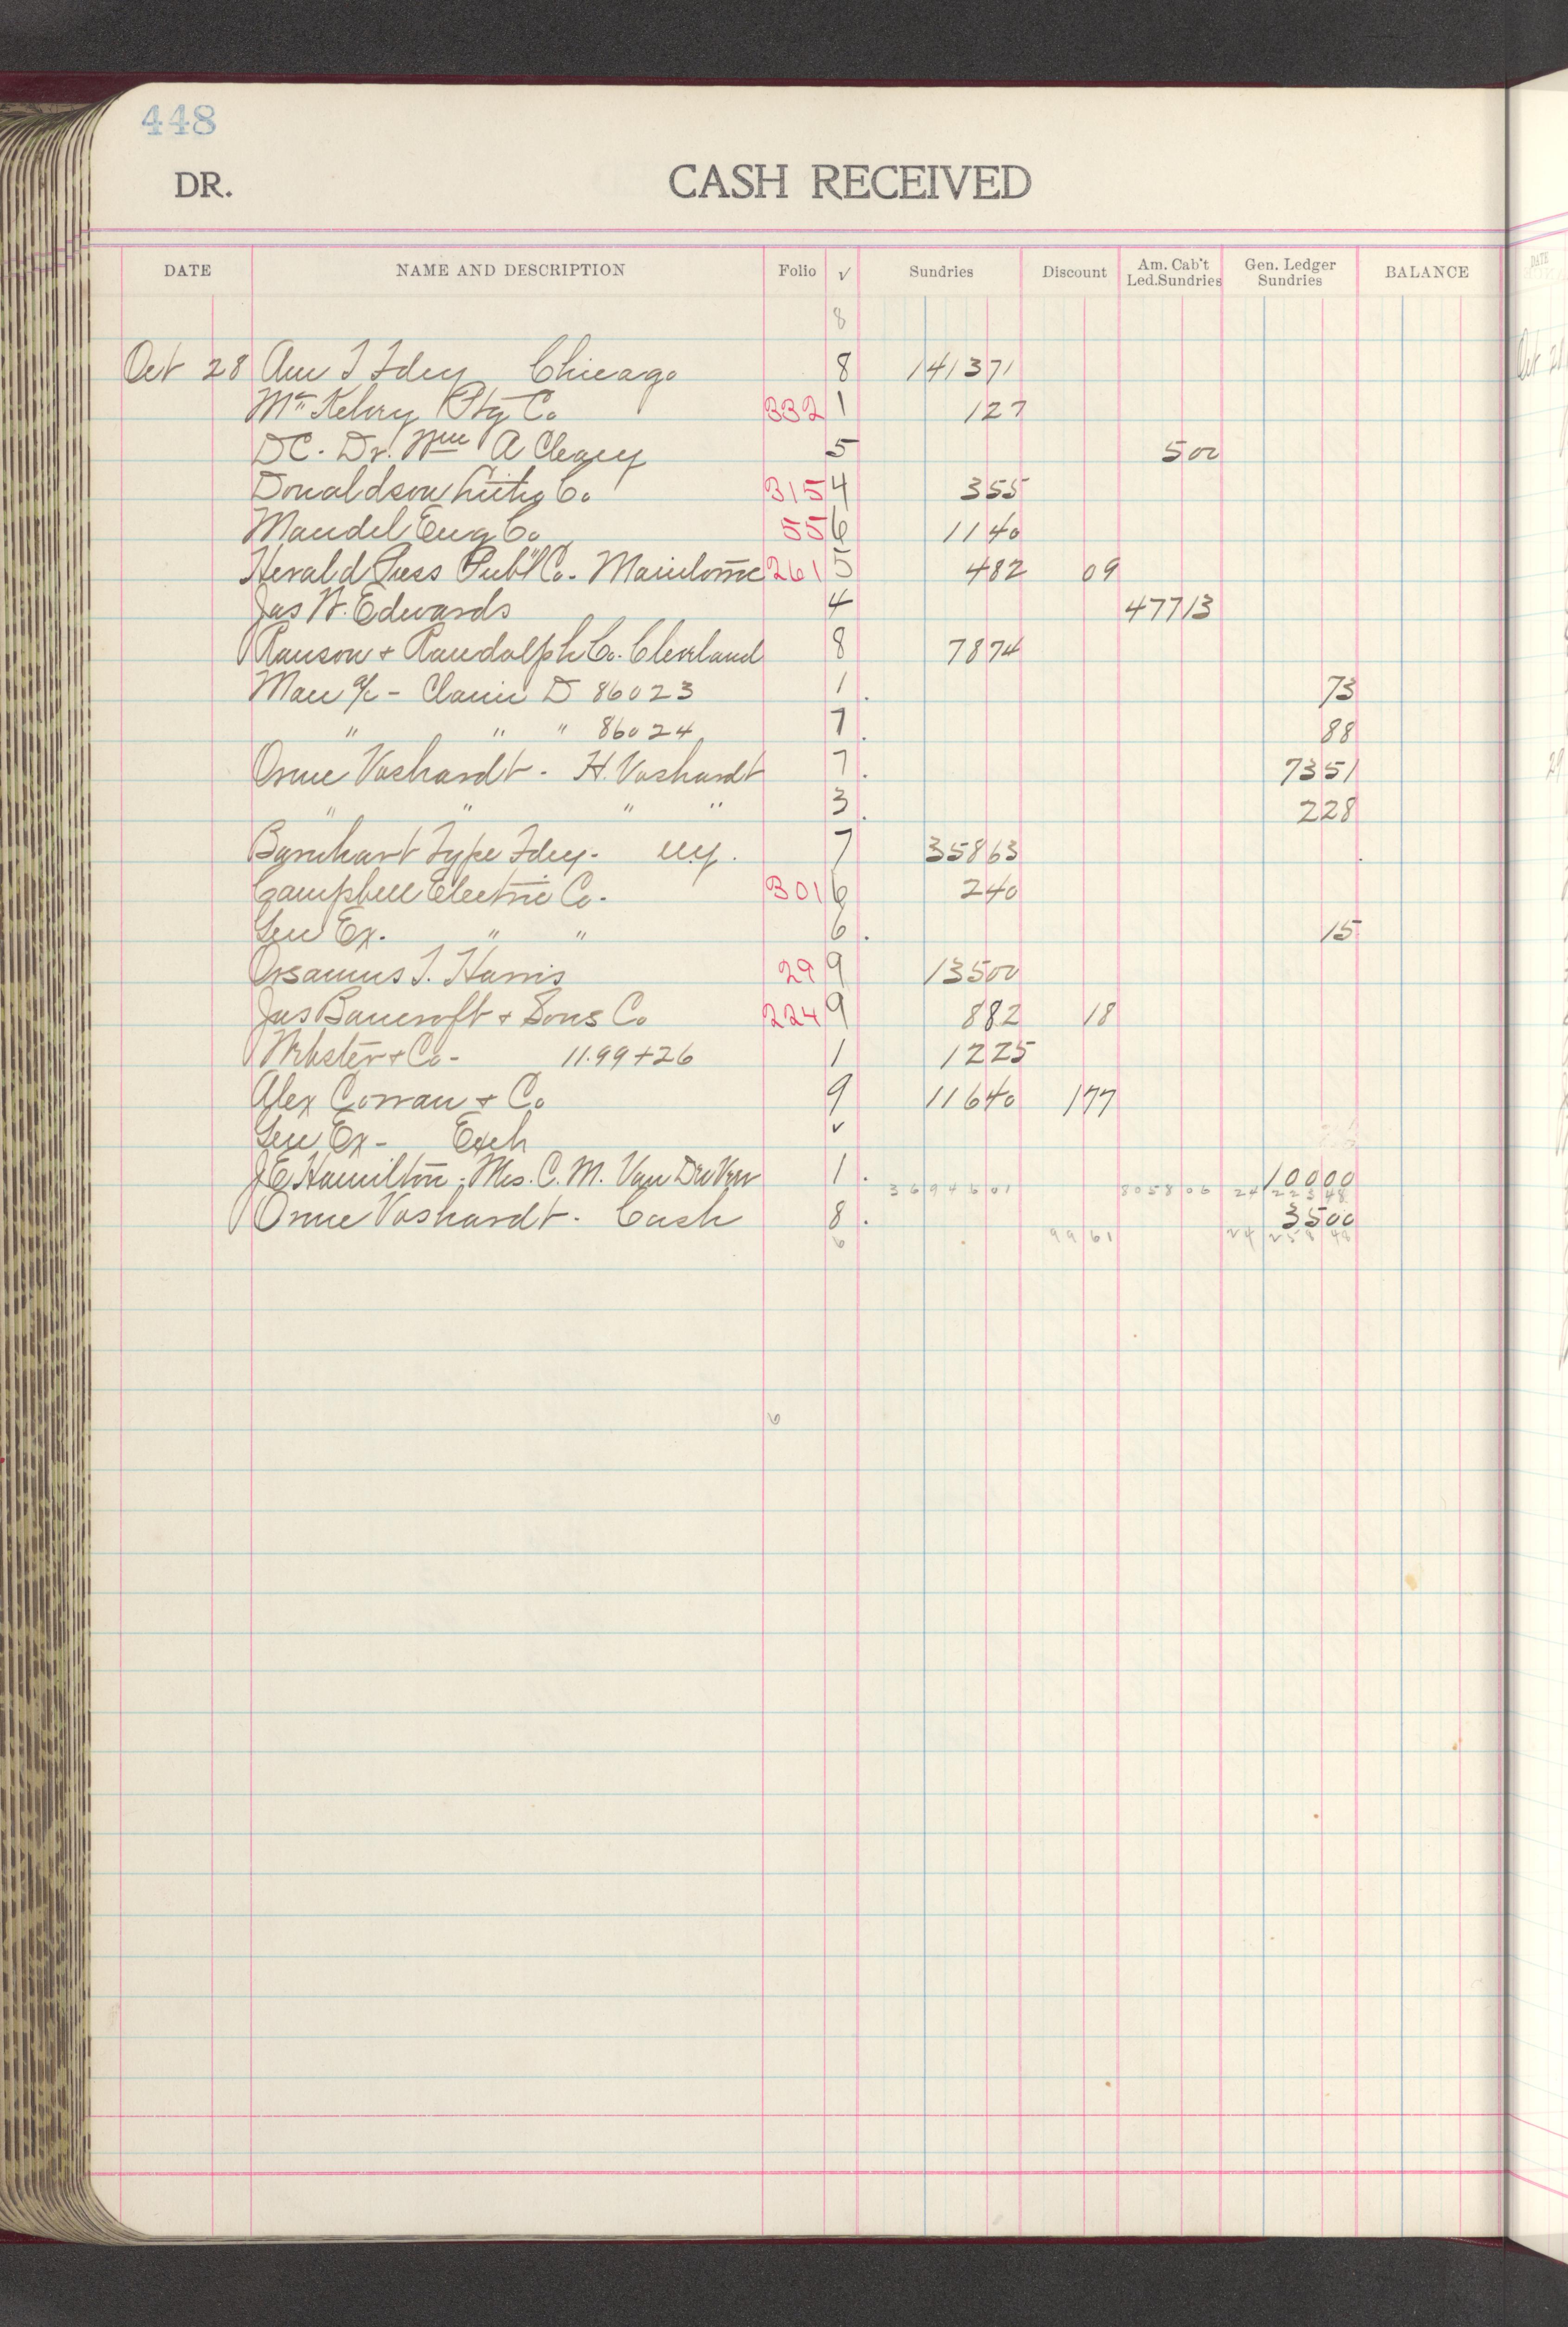 448
DR. CASH RECEIVED
DATE NAME AND DESCRIPTION Folio √ Sundries Discount Am. Cab't Led. Sundries Gen. Ledger Sundries BALANCE
8
Oct 28 Am T Fdry Chicago 8 1413 71
Mc Kelvey Ptg Co 332 1 1 27
DC. Dr. Wm A Cleary 5 5 00
Donaldson Litho Co 315 4 3 55
Mandel Eng Co 55 6 11 40
Herald Press Pub'l Co. 261 5 4 82 09
Jas W. Edwards 4 477 13
Ranson & Randolph Co. Cleveland 8 78 74
Man a/c - Claim D 86023 1 . 73
" " " 86024 7 . 88
Orme Voshardt - H. Voshardt 7 . 73 51
" " " " 3 . 2 28
Barnhart Type Fdry. N.Y. 7 358 63
Campbell Electric Co. 301 6 2 40
Gen Ex. " " 6 . 15
Orsamus T. Harris 29 9 135 00
Jas Bancroft & Sons Co 224 9 8 82 18
Webster & Co - 11.99 + 26 1 12 25
Alex Cowan & Co 9 116 40 1 77
Gen Ex - Exch √
J E Hamilton; Mrs. C. M. Van 1 . 100 00
36946 01 8058 06 24 223 48
Orme Voshardt. Cash 8 . 35 00
6 99 61 24 258 48
6